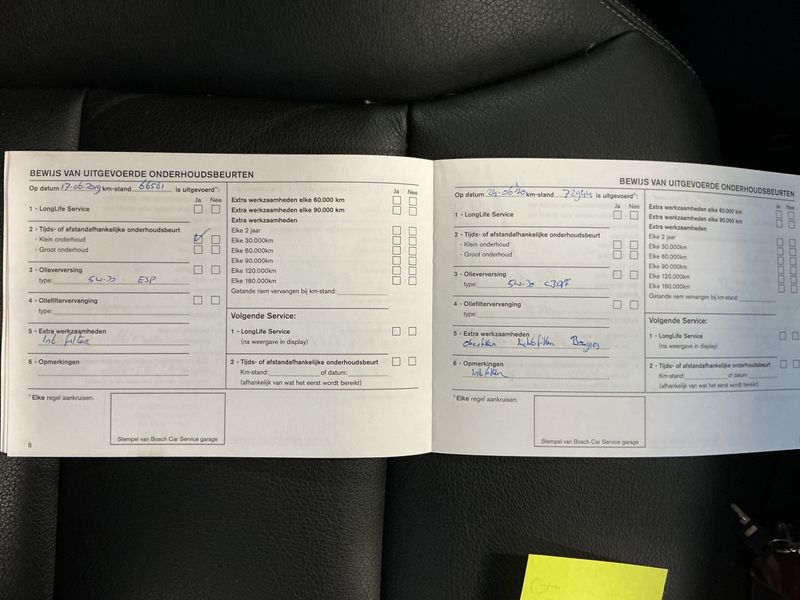 BEWIJS VAN UITGEVOERDE ONDERHOUDSBEURTEN
Op datum 17-06-2019 km-stand 66531 is uitgevoerd¹:
Ja Nee
1 - LongLife Service
2 - Tijds- of afstandafhankelijke onderhoudsbeurt
- Klein onderhoud
- Groot onderhoud
3 - Olieverversing
type: 5W-30 ESP
4 - Oliefiltervervanging
type:
5 - Extra werkzaamheden
Int filter
6 - Opmerkingen
¹ Elke regel aankruisen.
Stempel van Bosch Car Service garage
8
Ja Nee
Extra werkzaamheden elke 60.000 km
Extra werkzaamheden elke 90.000 km
Extra werkzaamheden
Elke 2 jaar
Elke 30.000km
Elke 60.000km
Elke 90.000km
Elke 120.000km
Elke 180.000km
Getande riem vervangen bij km-stand:
Volgende Service:
1 - LongLife Service
(na weergave in display)
2 - Tijds- of afstandafhankelijke onderhoudsbeurt
Km-stand: of datum:
(afhankelijk van wat het eerst wordt bereikt)
BEWIJS VAN UITGEVOERDE ONDERHOUDSBEURTEN
Op datum 24-06-20 km-stand 72944 is uitgevoerd¹:
Ja Nee
1 - LongLife Service
2 - Tijds- of afstandafhankelijke onderhoudsbeurt
- Klein onderhoud
- Groot onderhoud
3 - Olieverversing
type: 5W-30
4 - Oliefiltervervanging
type:
5 - Extra werkzaamheden
Bougies
6 - Opmerkingen
¹ Elke regel aankruisen.
Stempel van Bosch Car Service garage
Ja Nee
Extra werkzaamheden elke 60.000 km
Extra werkzaamheden elke 90.000 km
Extra werkzaamheden
Elke 2 jaar
Elke 30.000km
Elke 60.000km
Elke 90.000km
Elke 120.000km
Elke 180.000km
Getande riem vervangen bij km-stand:
Volgende Service:
1 - LongLife Service
(na weergave in display)
2 - Tijds- of afstandafhankelijke onderhoudsbeurt
Km-stand: of datum:
(afhankelijk van wat het eerst wordt bereikt)